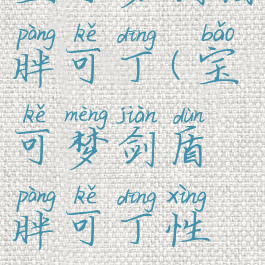 pàng kě dīng bǎo
胖可丁(宝
kě mèng jiàn dùn
可梦剑盾
pàng kě dīng xìng
胖可丁性